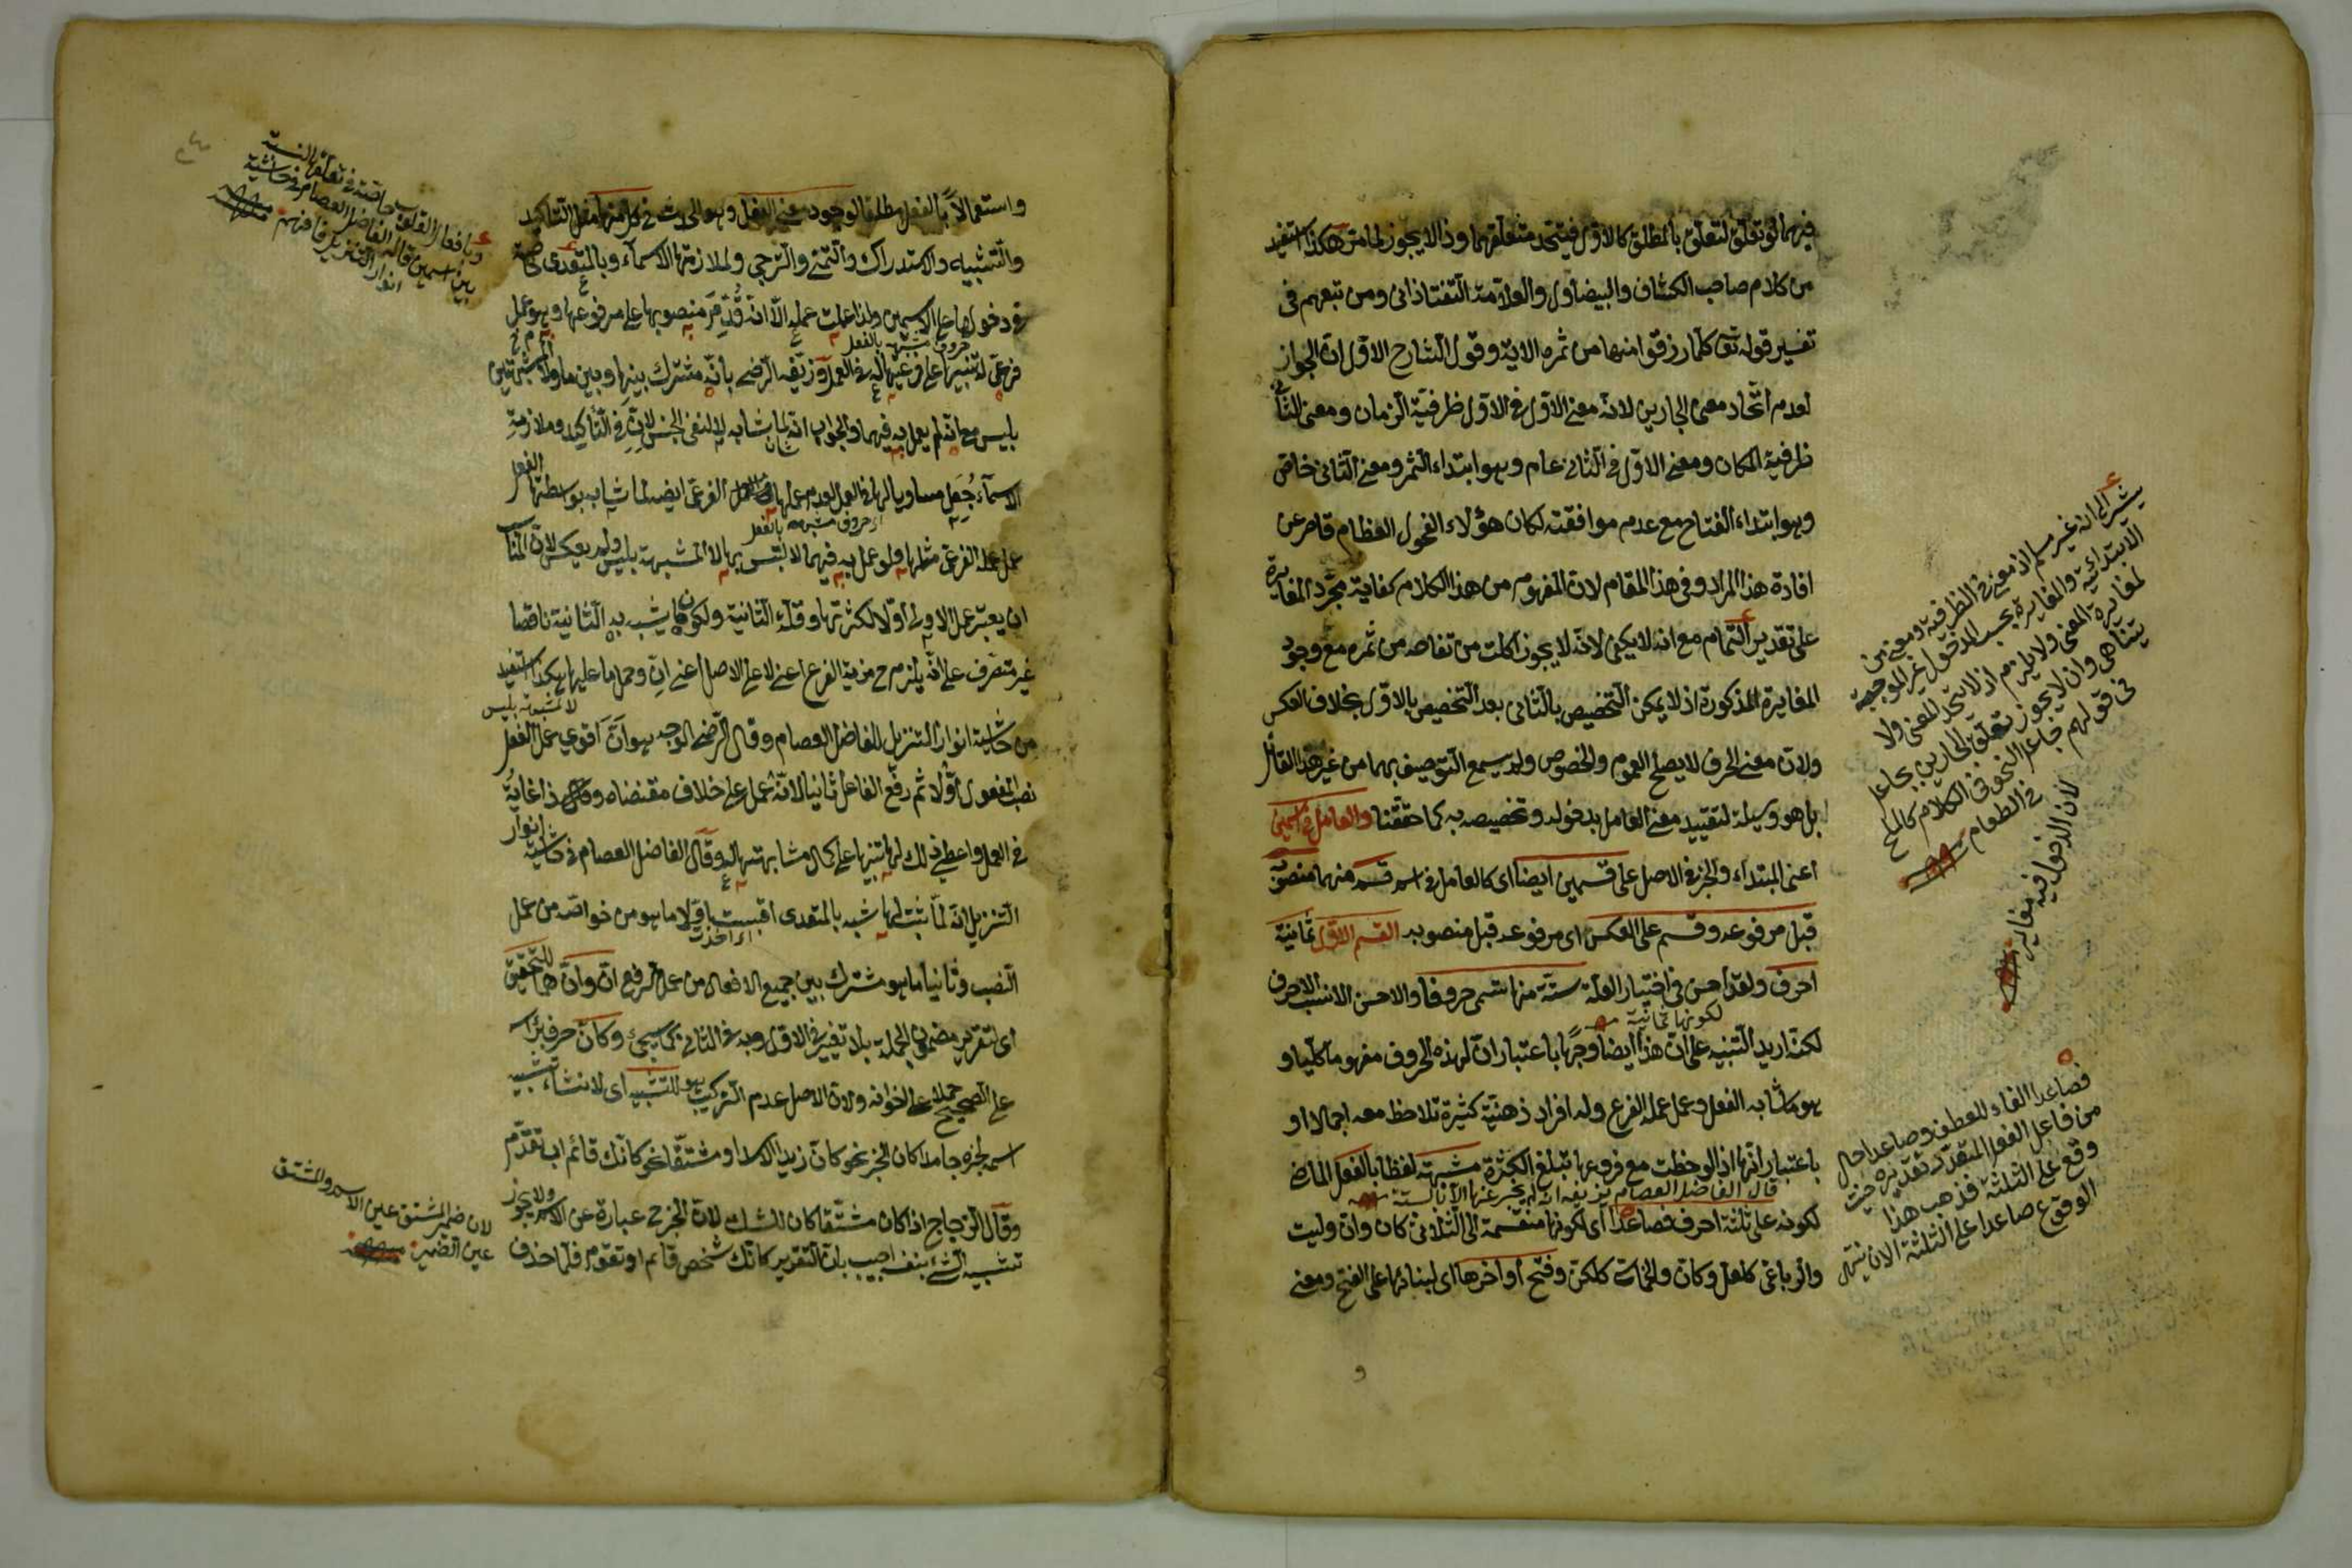 فيهما لو تعلق لتعلق بالمطلق كالاول فيتحد متعلقهما وذا لا يجوز لما مر هكذا استفيد
من كلام صاحب الكشاف والبيضاوى والعلامة التفتازانى ومن تبعهم فى
تفسير قوله تع كلما رزقوا منها من ثمره الاية وقول الشارح الاول ان الجواز
لعدم اتحاد معنى الجارين لانه معنى الاول فى الاول ظرفية الزمان ومعنى الثانى
ظرفية المكان ومعنى الاول فى الثانى عام وهو ابتداء الثمر ومعنى الثانى خاص
وهو ابتداء الفتاح مع عدم موافقته لكان هؤلاء الفحول العظام قاصر عن
افادة هذا المراد وفى هذا المقام لان المفهوم من هذا الكلام كفاية مجرد المغايرة
على تقدير التمام مع انه لا يكفى لانه لا يجوز اكلت من تفاحه من ثمره مع وجود
المغايرة المذكورة اذ لا يمكن التخصيص بالثانى بعد التخصيص بالاول بخلاف العكس
ولان معنى الحرف لا يصلح العموم والخصوص ولم يسمع التوصيف بهما من غير هذا القائل
بل هو وسيلة لتقييد معنى العامل بمدخوله وتخصيصه به كما حققنا والعامل فى اسمين
اعنى المبتداء والخبر فى الاصل على قسمين ايضا اى كالعامل فى اسم قسم منهما منصوبه
قبل مرفوعه وقسم على العكس اى مرفوعه قبل منصوبه القسم الاول ثمانية
احرف ولقد احسن فى اختيار القلة ستة منها تسمى حروفا والاحسن الانسب الاحرف
لكونها ثمانية
لكنه اريد التنبيه على ان هذا ايضا وجها باعتبار ان لهذه الحروف مفهوما كليا و
هو ما شابه الفعل وعمل عمله الفرع وله افراد ذهنية كثيرة تلاحظ معه اجمالا او
باعتبار انها اذا لوحظت مع فروعها تبلغ الكثرة مشبهة لفظا بالفعل الماضى
قال الفاضل العصام
لكونه على ثلثة احرف فصاعدا اى لكونها منقسمة الى الثلاثى كان وان وليت
والرباعى كلعل وكان والخماسى كلكن وفتح اواخرها اى لبنائها على الفتح ومعنى
يشير الى انه غير مسلم اذ معنى فى الظرفية ومعنى من
الابتدائية والمغايرة بحسب المدخول غير الموجبة
لمغايرة المعنى ولا يلزم ان لا يتحد المعنى ولا
يتناهى وان لا يجوز تعلق الجارين بعامل
فى قولهم جاعل النحو فى الكلام كالملح
فى الطعام
لان الدخول فيه مغاير
فصاعدا الفاء للعطف وصاعدا حال
من فاعل الفعل المقدر تقديره حيث
وقع على الثلثة فذهب هذا
الوقوع صاعدا على الثلثة الى ان ينتهى
و
واستعمالا بالفعل مطلقا لوجود معنى الفعل وهو الحدث فى كل منها مثل التأكيد
والتشبيه والاستدراك والتمنى والترجى ولملازمتها الاسماء وبالمتعدى خاصة
فى دخولها على الاسمين ولذا عملت عمله الا انه قدم منصوبها على مرفوعها وهو عمل
حروف مشبهة بالفعل
فرعى له تنبيها على فرعيتها له فى العمل وزيفه الرضى بانه مشترك بينها وبين ما ولا المشبهتين
بليس مع انه لم يعمل به فيهما والجواب انه لما شابه لا لنفى الجنس لان فى التأكيد وملازمة
الاسماء جعل مساويا لها فى العمل لعدم عملها الفرعى ايضا لما شابه بواسطتها الفعل
اى حروف مشبهة بالفعل
عمل عمله الفرعى مثلها ولو عمل به فيهما لالتبس بها لا المشبهة بليس ولم يعكس لان المناسب
ان يعتبر عمل الاولى اولا لكثرتها وقلة الثانية ولكون ما يشبه به الثانية ناقصا
غير متصرف على انه يلزم ح مزية الفرع اعنى لا على الاصل اعنى ان وحمل ما عليها هكذا استفيد
لا المشبهة بليس
من حاشية انوار التنزيل للفاضل العصام وقال الرضى الوجه هو ان اقوى عمل الفعل
نصب المفعول اولا ثم رفع الفاعل ثانيا لانه عمل على خلاف مقتضاه وذا غاية
فى العمل واعطى ذلك لها تنبيها على كمال مشابهتها له وقال الفاضل العصام فى حاشية انوار
التنزيل انه لما ثبت لها شبه بالمتعدى اقتبست اولا ما هو من خواصه من عمل
اى اخذت
النصب وثانيا ما هو مشترك بين جميع الافعال من عمل الرفع ان وان هما للتحقيق
اى لتقرير مضمون الجملة بلا تغيير فى الاول وبه فى الثانى كما سيجئ وكان حرف برأسه
على الصحيح حملا على اخواته ولان الاصل عدم التركيب هو للتشبيه اى لانشاء تشبيه
اسمه بخبره جامدا كان الخبر نحو كان زيدا الاسد او مشتقا نحو كانك قائم اب تقدم
وقال الزجاج اذا كان مشتقا كان للشك لان الخبر ح عبارة عن الاسم ولا يجوز
تشبيه الشئ بنفسه اجيب بان التقدير كانك شخص قائم او تقوم فلما حذف
وبافعال القلوب خاصة فى تعلقها النسبة
بين اسمين قاله الفاضل العصام فى حاشية
انوار التنزيل فافهم
لان ضمير المشتق عين الاسم والمشتق
عين الضمير